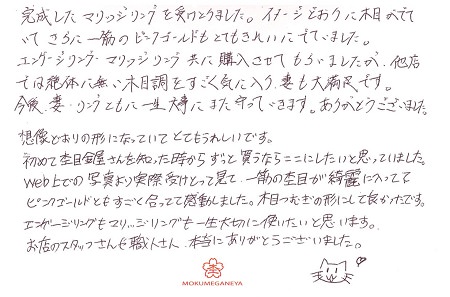 完成したマリッジリングを受けとりました。イメージどおりに木目がでて
いて さらに一筋のピンクゴールドもとてもきれいにでていました。
エンゲージリング・マリッジリング共に購入させてもらいましたが、他店
では絶体に無い木目調をすごく気に入り、妻も大満足です。
今後、妻・リングともに一生大事にまた守っていきます。ありがとうございました。
想像どおりの形になっていてとてもうれしいです。
初めて杢目金屋さんを知った時からずっと買うならここにしたいと思っていました。
web上での写真より実際受けとって見て、一筋の杢目が綺麗に入ってて
ピンクゴールドともすごく合ってて感動しました。木目つむぎの形にして良かったです。
エンゲージリングもマリッジリングも一生大切に使いたいと思います。
お店のスタッフさんも職人さん、本当にありがとうございました。
MOKUMEGANEYA